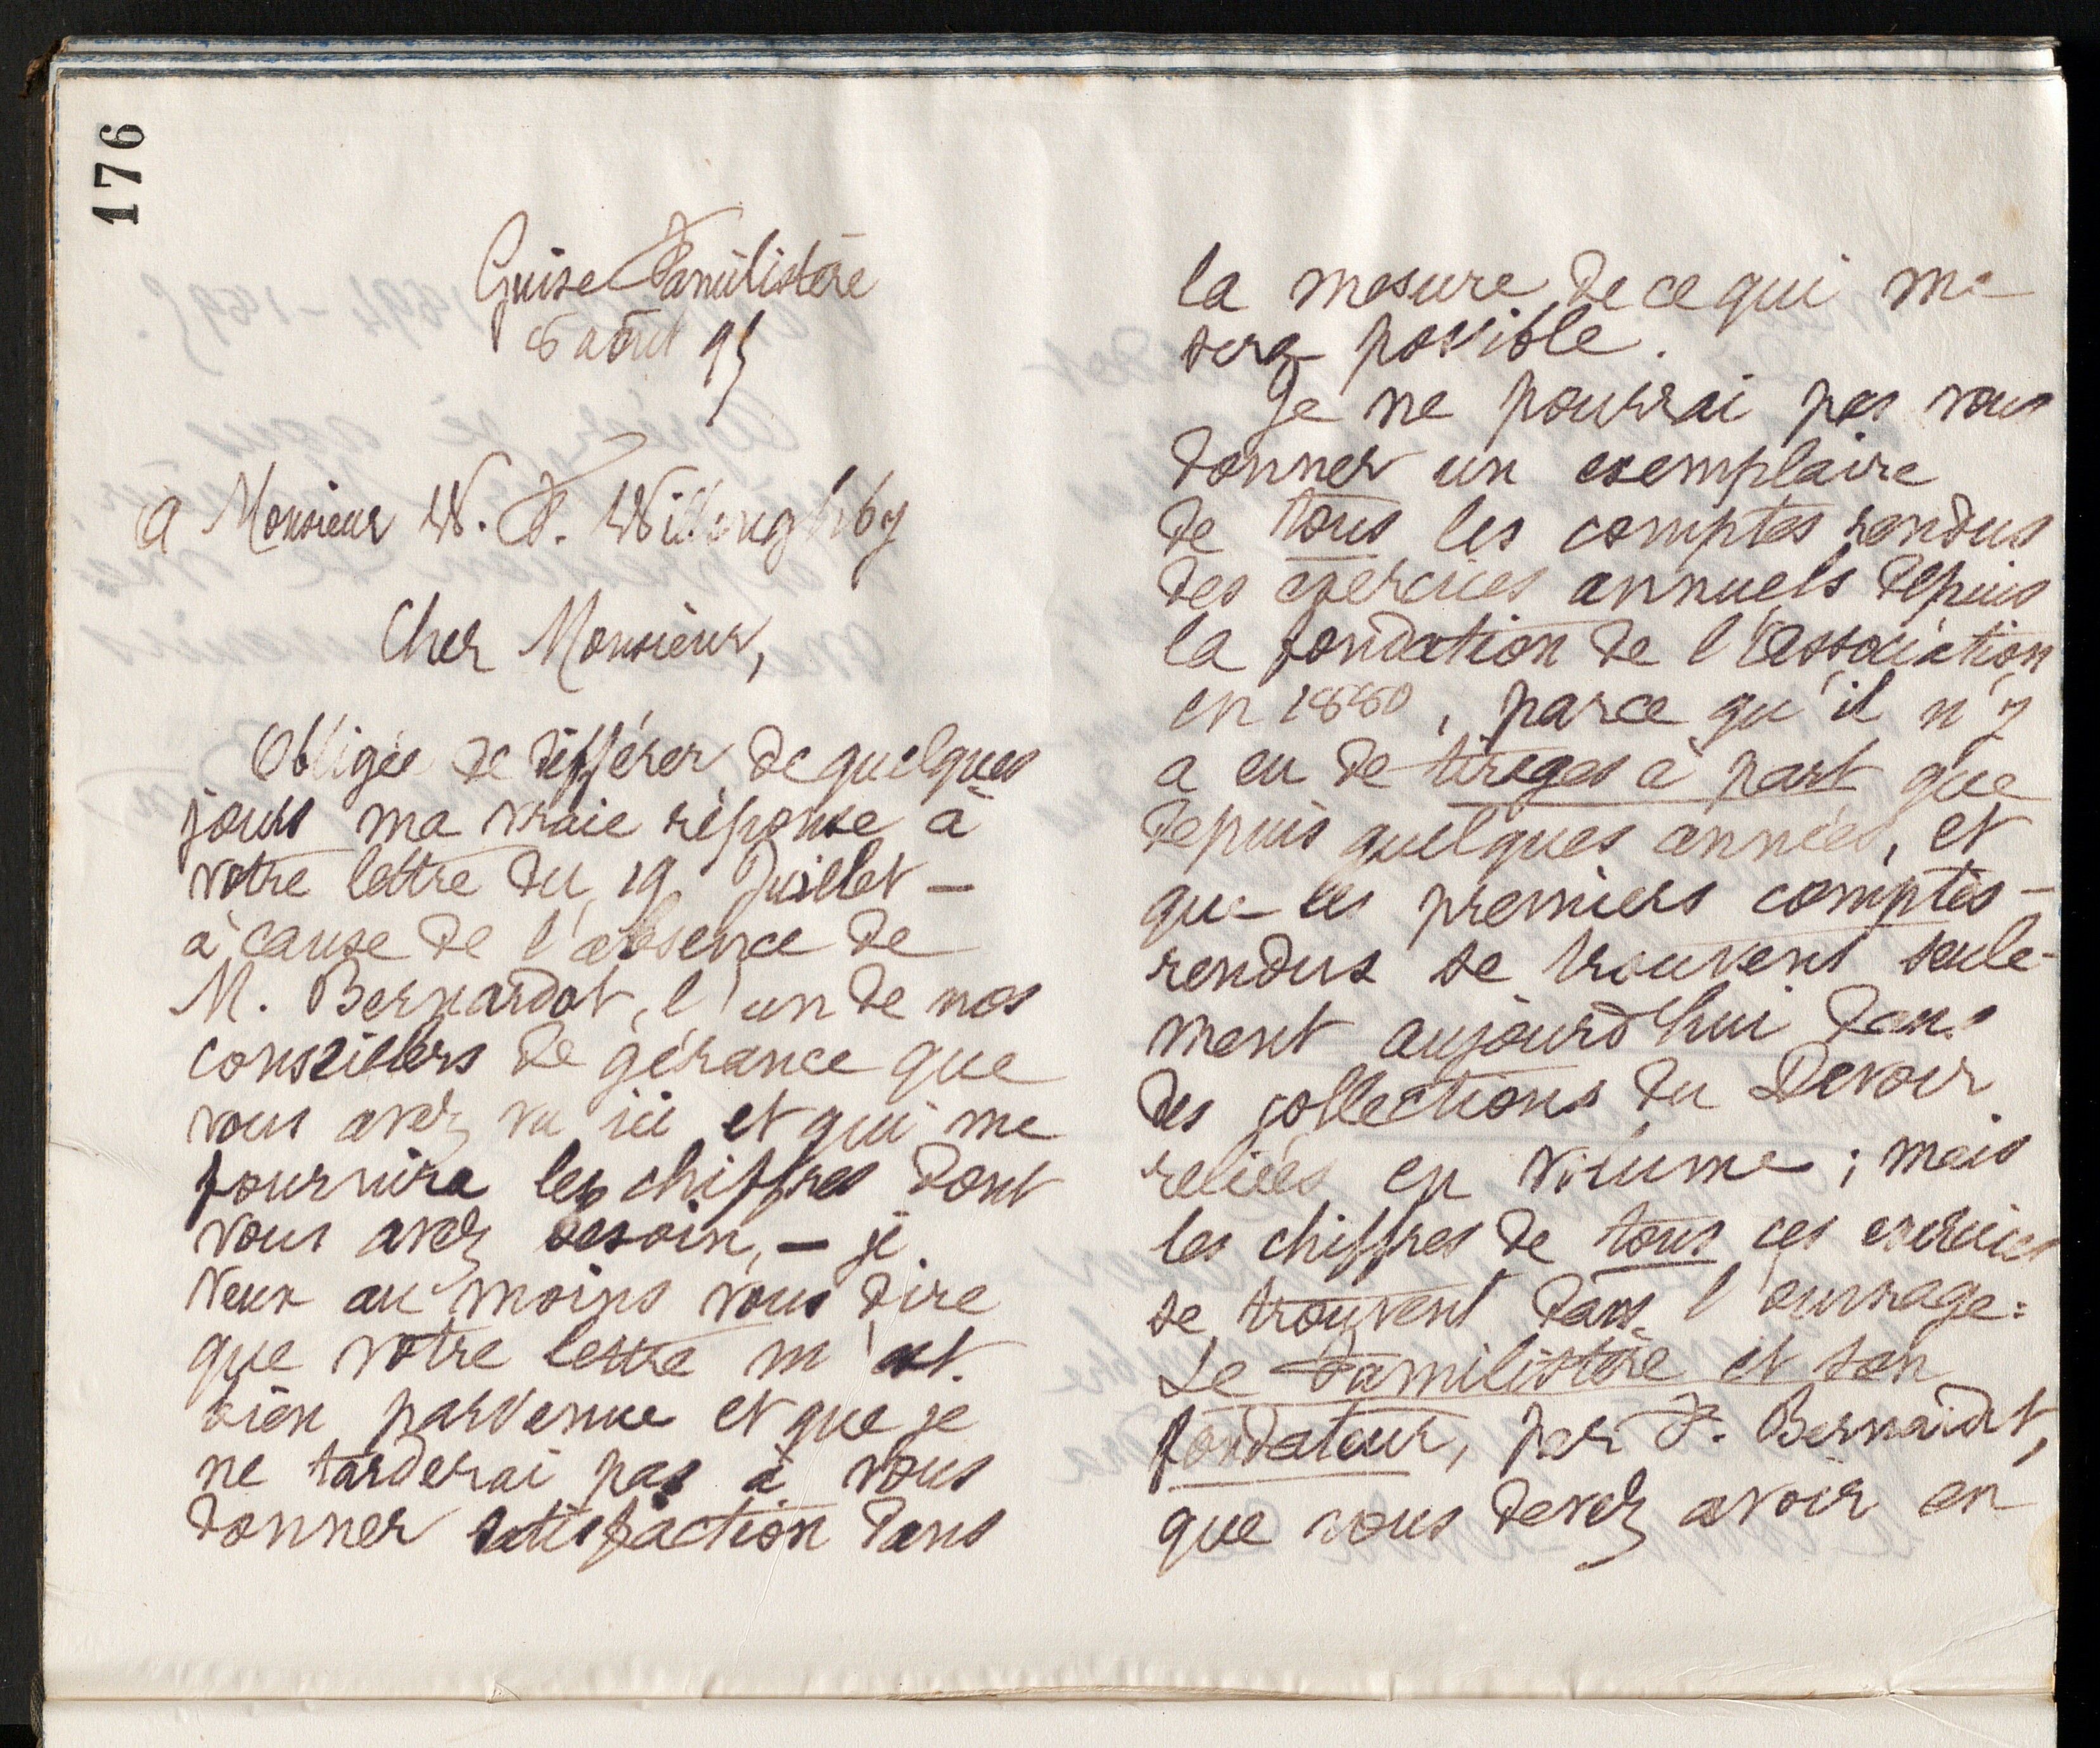 176
Guise Familistère
8 août 95
A Monsieur W. F. Willoughby
Cher Monsieur,
Obligée de différer de quelques
jours ma vraie réponse à
votre lettre du 19 Juillet –
à cause de l'absence de
M. Bernardot, l'un de nos
conseillers de gérance que
vous avez vu ici et qui me
fournira les chiffres dont
vous avez besoin, – je
veux au moins vous dire
que votre lettre m'est
bien parvenue et que je
ne tarderai pas à vous
donner satisfaction dans
la mesure de ce qui me
sera possible.
Je ne pourrai pas vous
donner un exemplaire
de tous les comptes rendus
des exercices annuels depuis
la fondation de l'association
en 1880, parce qu'il n'y
a eu de tirages à part que
depuis quelques années, et
que les premiers comptes-
rendus se trouvent seule-
ment aujourd'hui dans
des collections du Devoir
reliées en volume ; mais
les chiffres de tous ces exercices
se trouvent dans l'ouvrage :
Le Familistère et son
fondateur, par F. Bernardot,
que vous devez avoir en